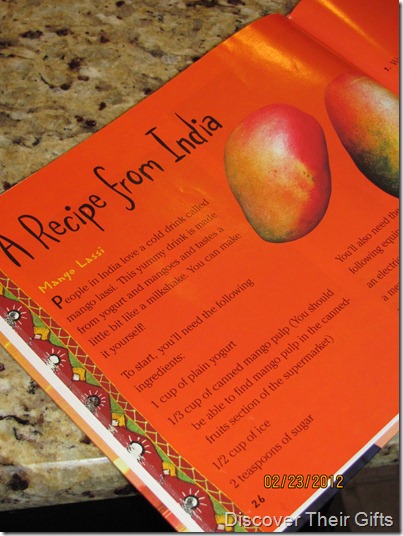 A Recipe from India
Mango Lassi
People in India love a cold drink called
mango lassi. This yummy drink is made
from yogurt and mangoes and tastes a
little bit like a milkshake. You can make
it yourself!
To start, you'll need the following
ingredients:
1 cup of plain yogurt
1/3 cup of canned mango pulp (You should
be able to find mango pulp in the canned-
fruits section of the supermarket)
1/2 cup of ice
2 teaspoons of sugar
26
You'll also need the
following equip
an electri
a me
1. W
02/23/2012
Discover Their Gifts